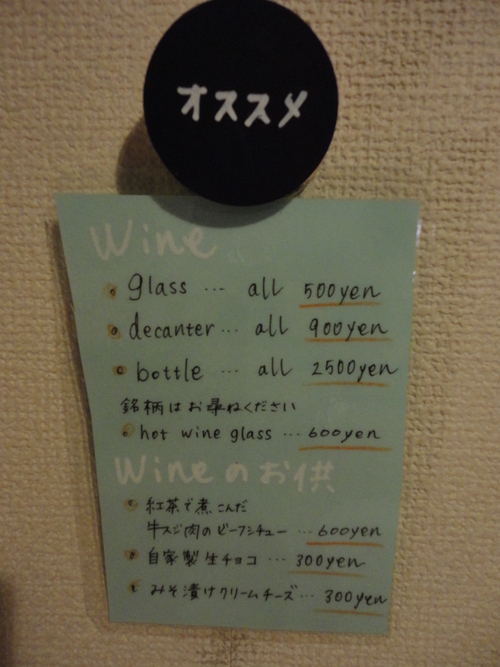 オススメ
Wine
glass … all 500yen
decanter … all 900yen
bottle … all 2500yen
銘柄はお尋ねください
hot wine glass … 600yen
Wineのお供
紅茶で煮こんだ
牛スジ肉のビーフシチュー … 600yen
自家製生チョコ … 300yen
みそ漬けクリームチーズ … 300yen